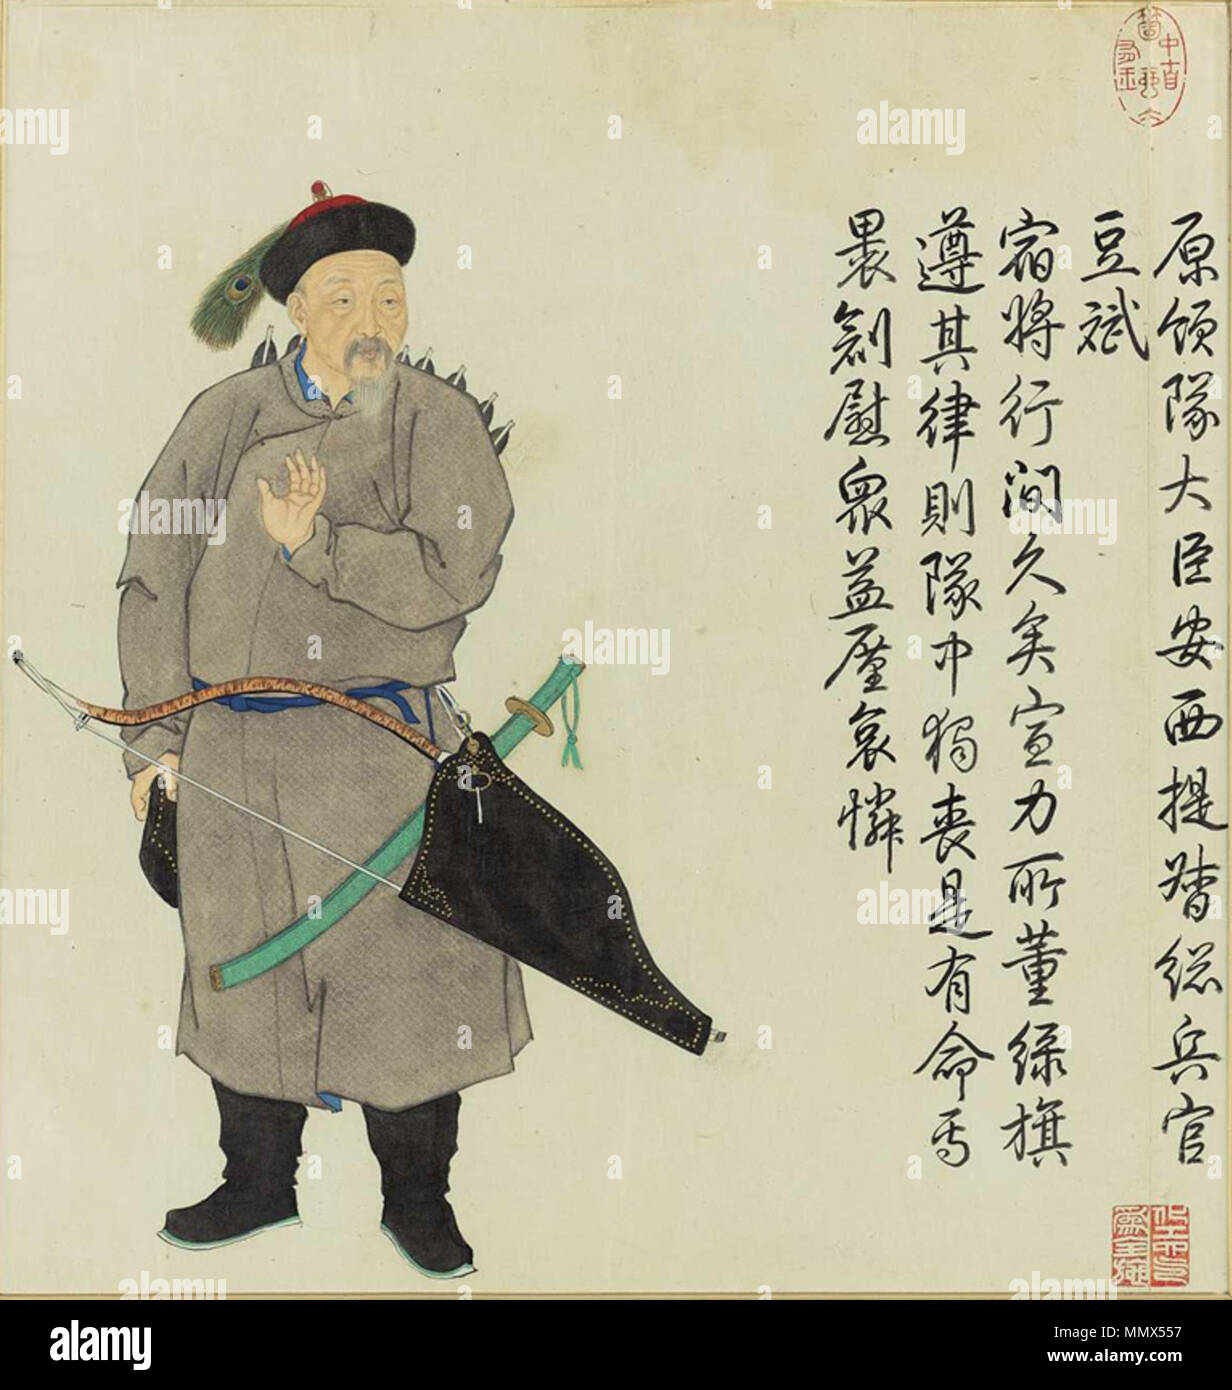 原領隊大臣安西提督緫兵官
豆斌
宿將行間久矣宣力所董綠旗
遵其律則隊中獨喪是有命焉
裹創慰衆益廑哀憐
alamy
Image ID: MMX557
www.alamy.com